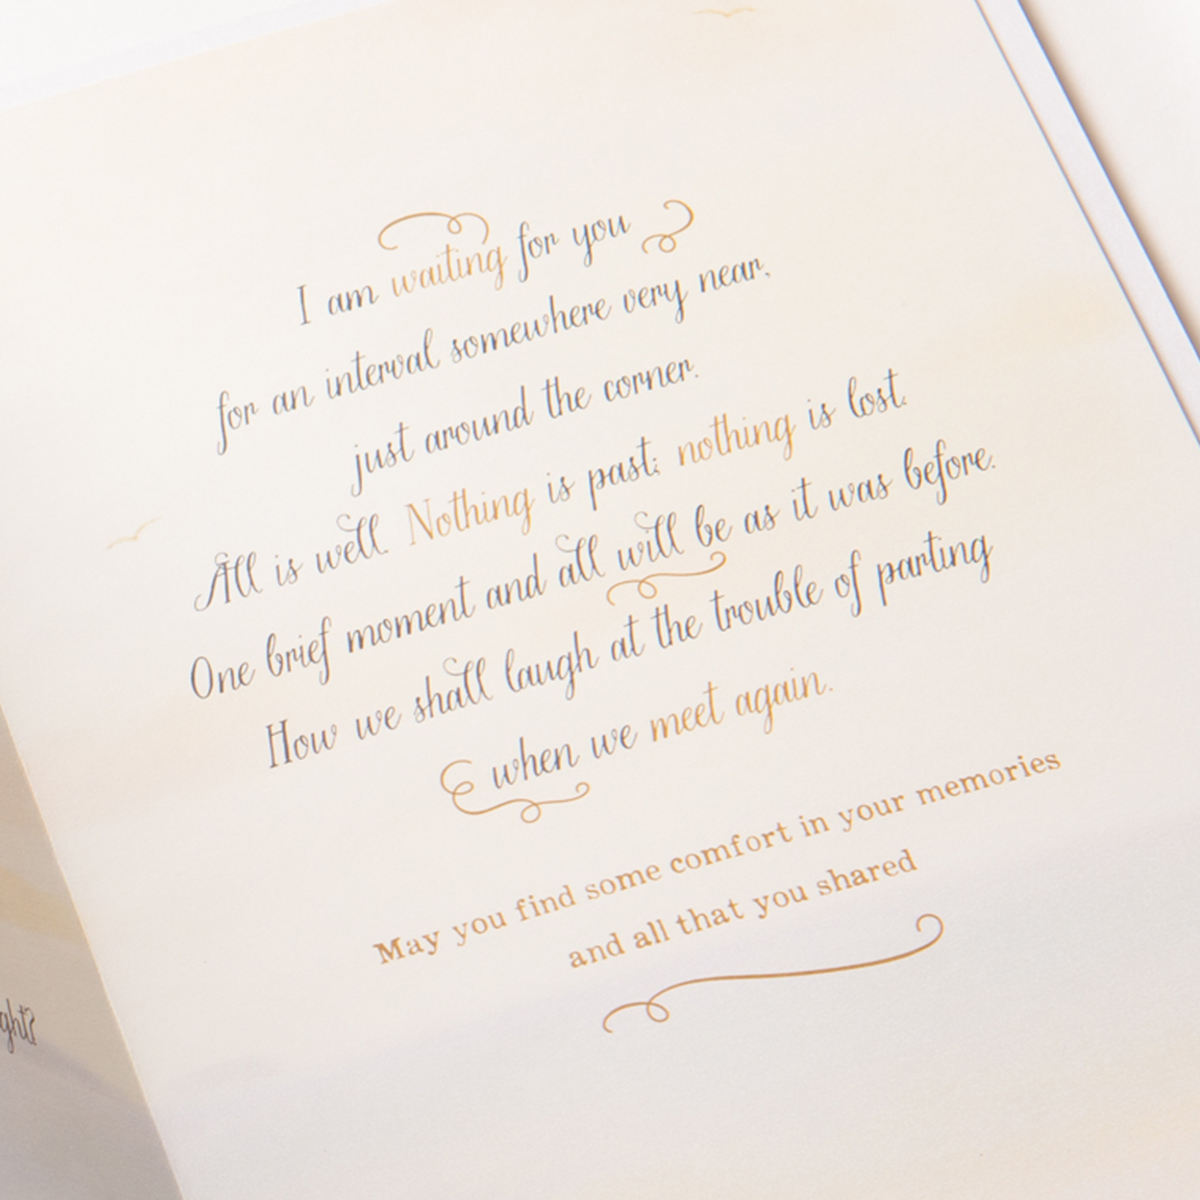 I am waiting for you
for an interval somewhere very near,
just around the corner.
All is well. Nothing is past; nothing is lost.
One brief moment and all will be as it was before.
How we shall laugh at the trouble of parting
when we meet again.
May you find some comfort in your memories
and all that you shared
ght?